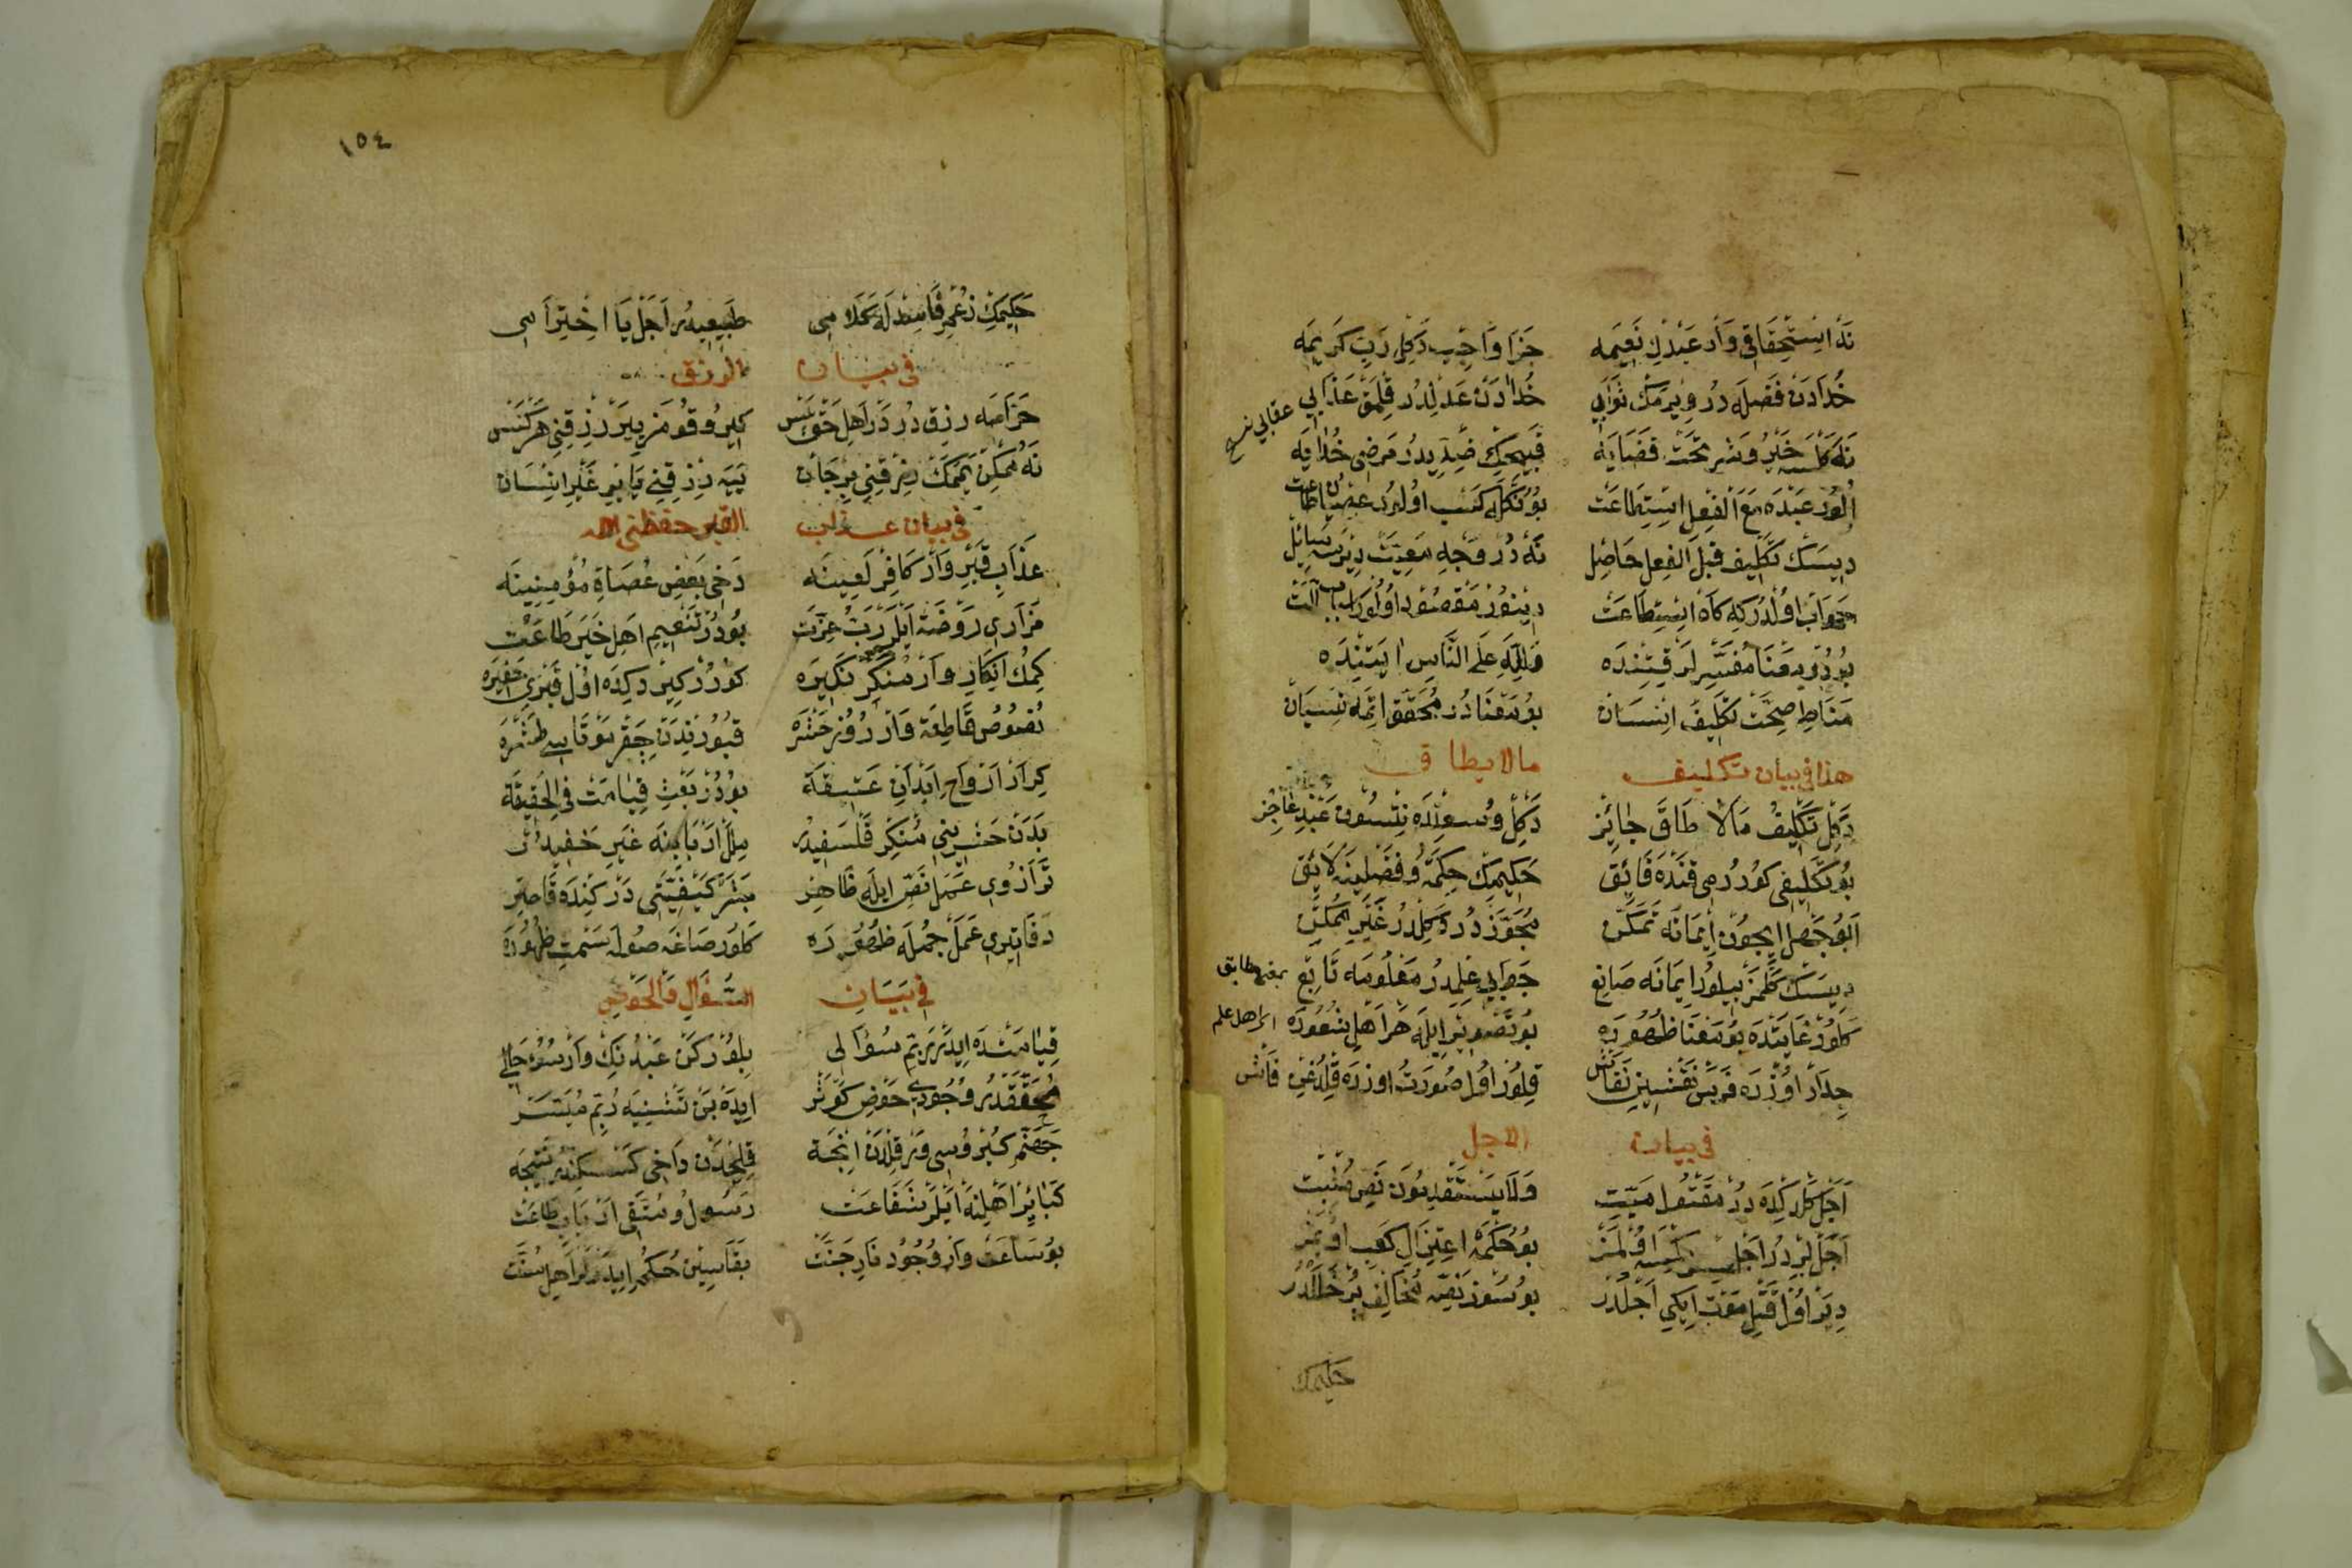 نه استحقاقی وار عبدك نعیمه جزا واجب دكل رب كریمه
خدادن فضله در ویرمك ثوابی خدادن عدلدر قلمق عذابی
عقابی نسخ
نه كلسه خیر و شر تحت قضایه قبیحك ضدیدر مرضی خدایه
الور عبده مع الفعل استطاعت بونكله كسب اولنور عصیان طاعت
دیسك تكلیف قبل الفعل حاصل نه در وجه معیت دیرسه سائل
جواب اولدر كه كاه استطاعت دینور مقصود اولور اسباب آلت
بودر معنا مفسرلر قتنده ولله علی الناس ایتنده
مناط صحت تكلیف انسان بو معنادر محقق اتمه نسیان
هذا فی بیان تكلیف مالا یطاق
دكل تكلیف مالا طاق جایز دكل وسعنده نتسون عبد عاجز
بو تكلیفی كورر می قنده فائق حكیمك حكمة و فضلینه لائق
ابو جهل ایچون ایمانه تمكن مجوز در دكلدر غیر ممكن
دیسك كلمز بیلور ایمانه صانع جوابی علمدر معلومه تابع
بمعنی مطابق
كلور غایتده بو معنا ظهوره بو تصویر ایله هر اهل شعوره
ای اهل علم
جدار اوزره فرس نقشین نقاش قلور اول صورت اوزره قلدغن فاش
فی بیان الاجل
اجل كلدكده در مقتول میت ولا یستقدمون نص مثبت
اجل بردر اجل سز كمسه اولمز بو حكمه اعتزال كعب اولمز
دیر اول قتل موت ایكی اجلدر بو سوز نصه مخالف بر خللدر
حكیمك
١٥٤
حكیمك زعم فاسدله كلامی طبیعیدر اجل یا اخترامی
فی بیان الرزق
حرامه رزق در در اهل حق بس كیر وقومز ییر رزقنی هركس
نه ممكن یمك رزقنی بر جان ییه رزقنی یا بر غیر انسان
فی بیان عذاب القبر حفظنی الله
عذاب قبر وار كافر لعینه دخی بعض عصاة مؤمنینه
مزاری روضه ایلر رب عزت بودر تنعیم اهل خیر طاعت
كمك انكار وار منكر نكیره كورر كیردكده اول قبری حفیره
نصوص قاطعه وار روز حشره قبورندن چقر موتاسی طشره
كرر ارواح ابدان عتیقه بودر بعث قیامت فی الحقیقه
بدن حشرینی منكر فلسفیدر ملل اربابنه غیر خفیدر
ترازوی عمل نص ایله ظاهر بشر كیفیتی دركنده قاصر
دفاتری عمل جمله ظهوره كلور صاغه صوله سمت ظهوره
فی بیان السؤال والحوض
قیامتده ایدر ربم سؤالی بلور كن عبدنك وار سوء حالی
محققدر وجودی حوض كوثر ایده بن تشنیه ربم میسر
جهنم كبروسی وار قلدن انجه قلجدن داخی كسكندر نتیجه
كبائر اهلنه ایلر شفاعت رسول و متقی ارباب طاعت
بو ساعت وار وجود نار جنت بقاسین حكم ایدرلر اهل سنت